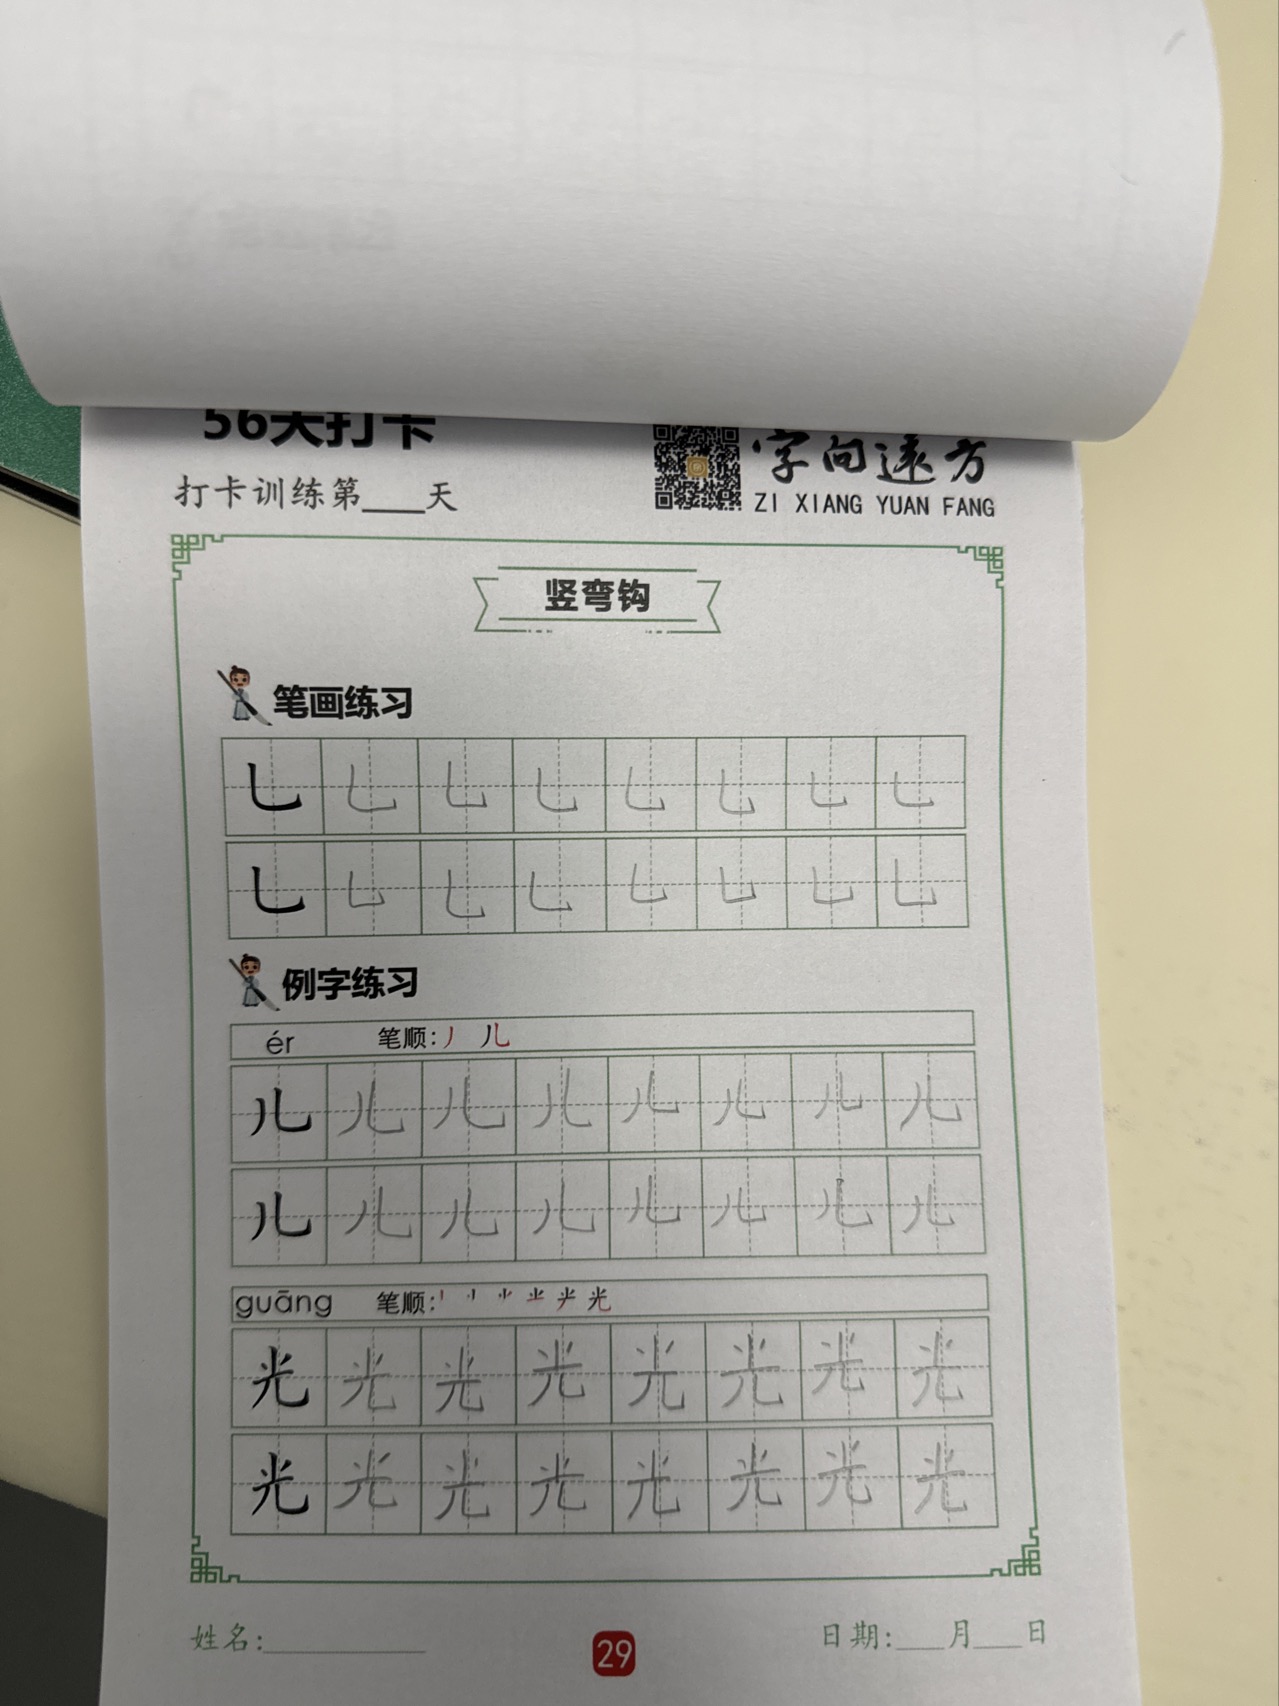 56天打卡
字向远方
打卡训练第____天
ZI XIANG YUAN FANG
竖弯钩
笔画练习
乚 乚 乚 乚 乚 乚 乚 乚
乚 乚 乚 乚 乚 乚 乚 乚
例字练习
ér 笔顺:丿 儿
儿 儿 儿 儿 儿 儿 儿 儿
儿 儿 儿 儿 儿 儿 儿 儿
guāng 笔顺: 光
光 光 光 光 光 光 光 光
光 光 光 光 光 光 光 光
姓名:__________ 29 日期:___月___日